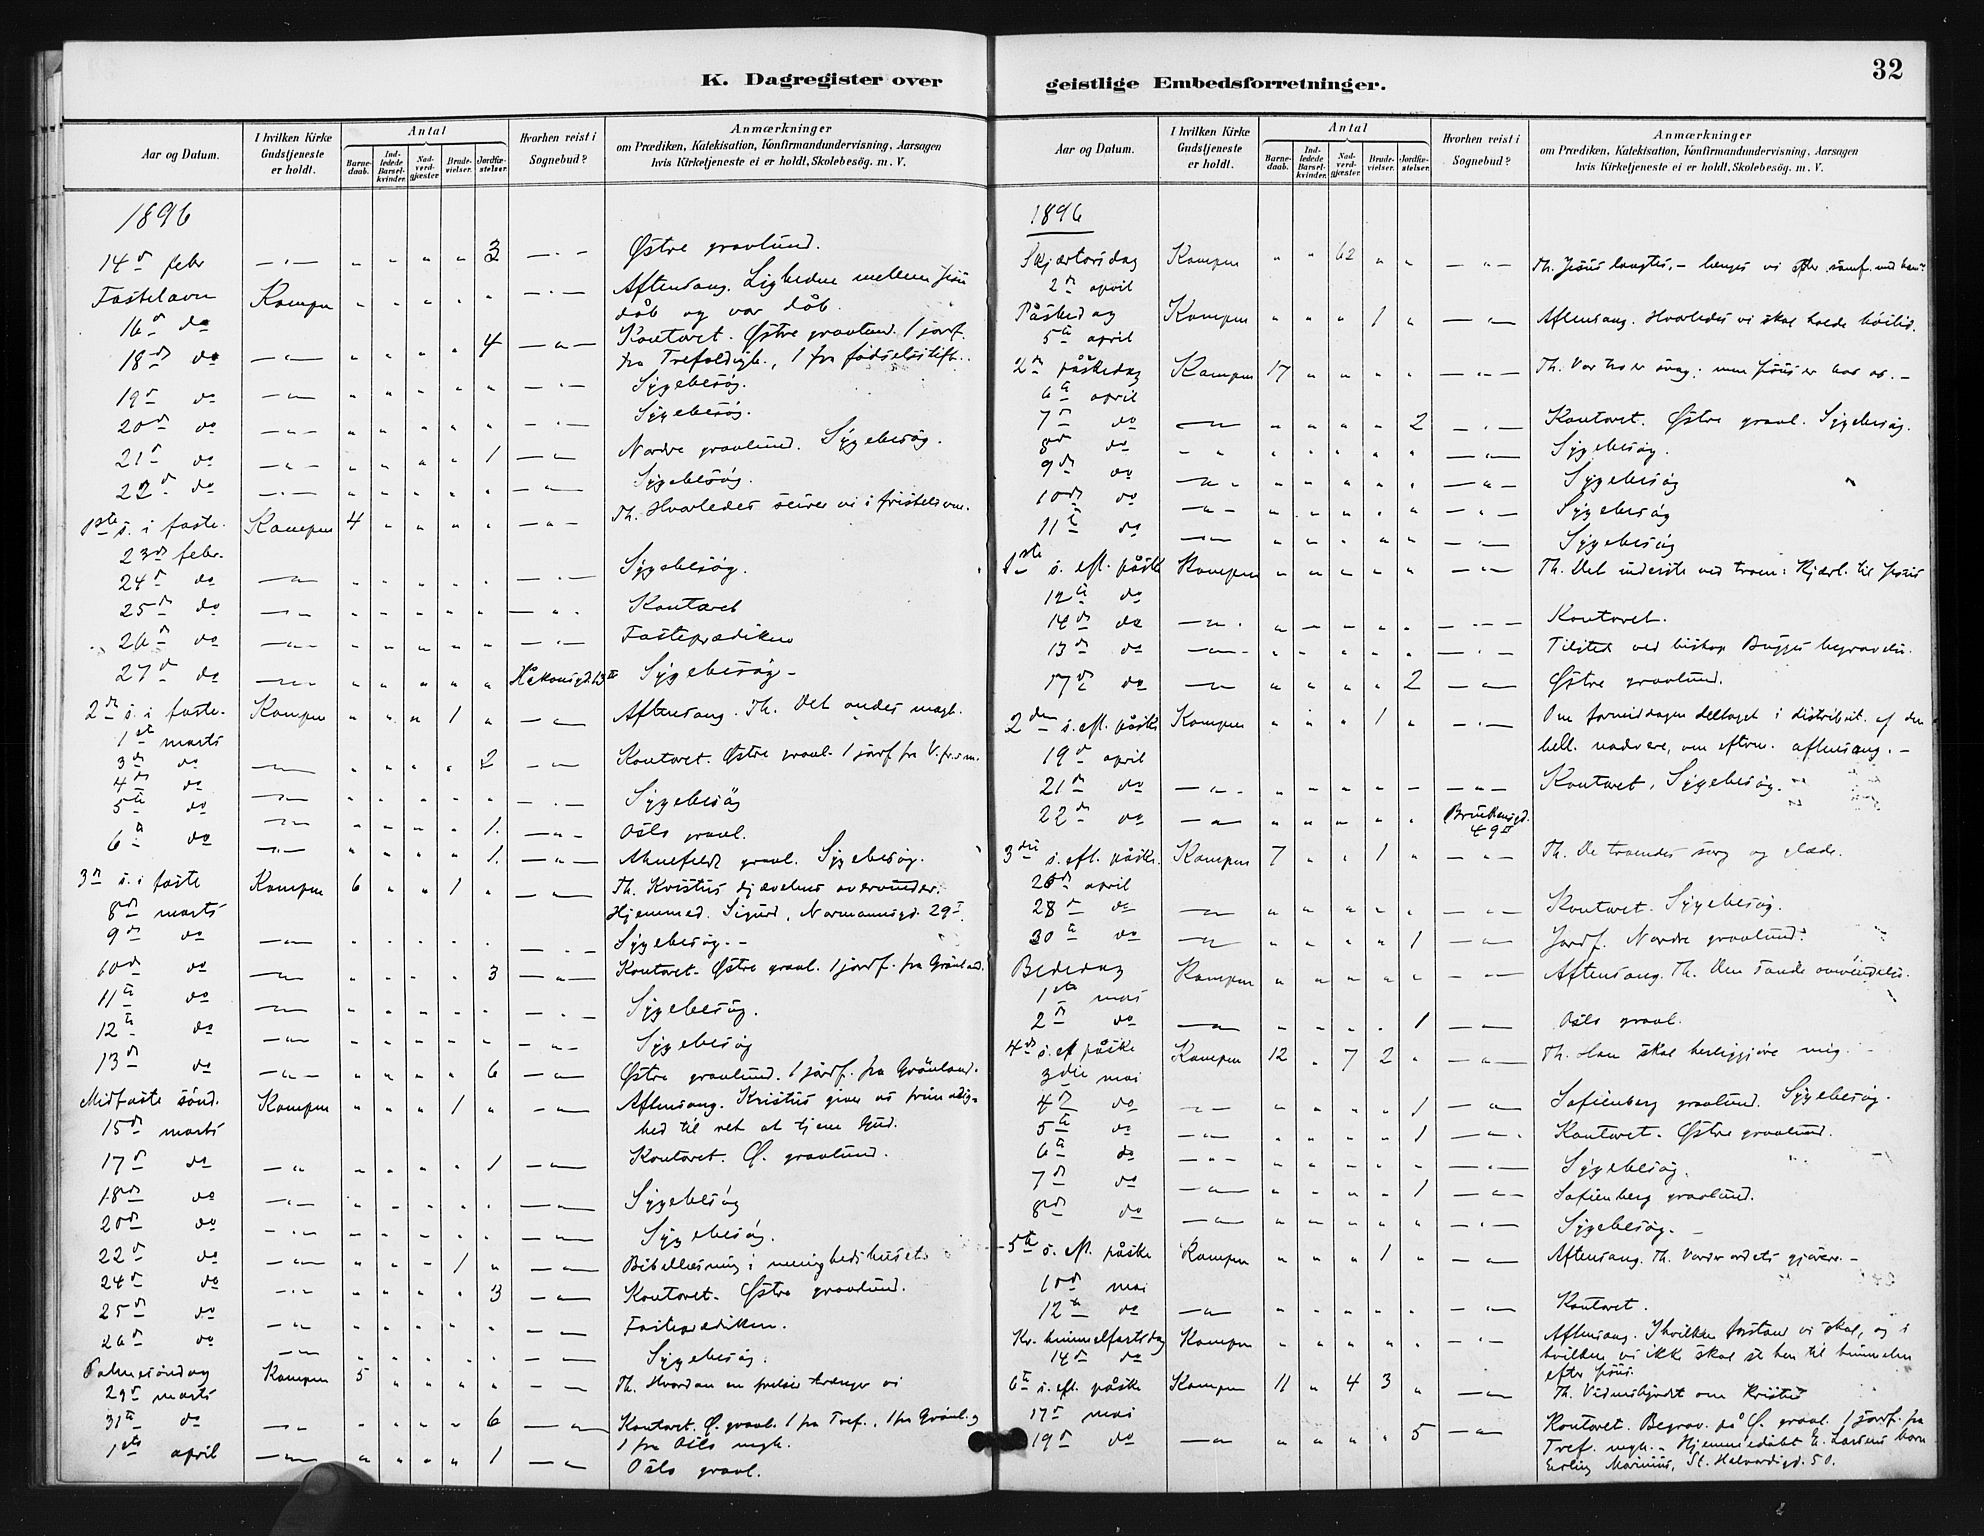 K. Dagregister over
Aar og Datum.
I hvilken Kirke Gudstjeneste er holdt.
Antal
Barne-daab.
Ind-ledede Barsel-kvinder.
Nad-verd-gjæster
Brude-vielser.
Jordfæ-stelser.
Hvorhen reist i Sognebud?
Anmærkninger
om Prædiken, Katekisation, Konfirmandundervisning, Aarsagen
hvis Kirketjeneste ei er holdt, Skolebesög. m. V.
1896
14d febr — " — " " " " 3 — " — Østre gravlund.
Fastelavn Kampen " " " " " — " — Aftensang. Ligheden mellem Jesu
16d do dåb og vor dåb.
18de do — " — " " " " 4 — " — Kontoret. Østre gravlund. 1 jordf.
fra Trefoldigh., 1 fra fødselsstift.
19d do — " — " " " " " — " — Sygebesög.
20de do — " — " " " " " — " — Sygebesög.
21d do — " — " " " " 1 — " — Nordre gravlund. Sygebesög.
22d do — " — " " " " " — " — Sygebesög.
1ste s. i faste. Kampen 4 " " " " — " — Th. Hvorledes seirer vi i fristelsen.
23de febr.
24d do — " — " " " " " — " — Sygebesög.
25de do — " — " " " " " — " — Kontoret
26d do — " — " " " " " — " — Fasteprædiken
27d do — " — " " " " " Håkonsgd. 13II Sygebesög —
2den s. i faste. Kampen " " " 1 " — " — Aftensang. Th. Det ondes magt.
1ste marts
3de do — " — " " " " 2 — " — Kontoret. Østre gravl. 1 jordf fra V. fr. s m.
4de do — " — " " " " " — " — Sygebesög
5te do — " — " " " " 1. — " — Oslo gravl.
6te do — " — " " " " 1. — " — Ahnefeldt gravl. Sygebesög.
3die s. i faste Kampen 6 " " 1 " — " — Th. Kristus djævelens overvinder.
8de marts Hjemmed. Sigurd, Normannsgd. 29I.
9de do — " — " " " " " — " — Sygebesög. —
10de do — " — " " " " 3 — " — Kontoret. Østre gravl. 1 jordf. fra Grönland.
11te do — " — " " " " " — " — Sygebesög.
12te do — " — " " " " " — " — Sygebesög
13de do — " — " " " " 6 — " — Østre gravlund. 1 jordf. fra Grönland.
Midfaste sönd. Kampen " " " 1 " — " — Aftensang. Kristus giver os frimodig-
15de marts hed til ret at tjene Gud.
17d do — " — " " " " 1 — " — Kontoret. Ø. gravlund.
18de do — " — " " " " " — " — Sygebesög
20de do — " — " " " " " — " — Sygebesög.
22d do — " — " " " 1 " — " — Bibellæsning i menighedshuset
24d do — " — " " " " 3 — " — Kontoret. Østre gravlund.
25de do — " — " " " " " — " — Fasteprædiken.
26d do — " — " " " " " — " — Sygebesög.
Palmesöndag Kampen 5 " " " " — " — Th. Hvordan en frelser trænger vi
29d marts
31te do — " — " " " " 6 — " — Kontoret. Ø. gravl. 1 fra Tref., 1 fra Grönl. og
1 fra Oslo mgh.
1ste april — " — " " " " 1 — " — Oslo gravl.
geistlige Embedsforretninger.
32
Aar og Datum.
I hvilken Kirke Gudstjeneste er holdt.
Antal
Barne-daab.
Ind-ledede Barsel-kvinder.
Nad-verd-gjæster
Brude-vielser.
Jordfæ-stelser.
Hvorhen reist i Sognebud?
Anmærkninger
om Prædiken, Katekisation, Konfirmandundervisning, Aarsagen
hvis Kirketjeneste ei er holdt, Skolebesög. m. V.
1896
Skjærtorsdag Kampen " " 62 " " — " — Th. Jesus længtes, — længes vi efter samf. med ham?
2den april
Påskedag Kampen " " " 1 " — " — Aftensang. Hvorledes vi skal holde höitid.
5te april
2den påskedag Kampen 17 " " " " — " — Th. Vor tro er svag; men Jesus er hos os. —
6te april
7d do — " — " " " " 2 — " — Kontoret. Østre gravl. Sygebesög.
8de do — " — " " " " " — " — Sygebesög.
9de do — " — " " " " " — " — Sygebesög
10de do — " — " " " " " — " — Sygebesög
11te do — " — " " " " " — " — Sygebesög
1ste s. eft. påske Kampen " " " " " — " — Th. Det inderste ved troen: Kjærl. til Jesus
12te do
14de do — " — " " " " " — " — Kontoret.
13de do — " — " " " " " — " — Tilsted ved biskop Bugges begravelse.
17de do — " — " " " " 2 — " — Østre gravlund.
2den s. eft. påske Kampen " " " 1 " — " — Om formiddagen deltaget i distribut. af den
19d april hell. nadvere, om eftm. aftensang. —
21de do — " — " " " " " — " — Kontoret, Sygebesög.
22de do — " — " " " " " Brinkensgd. 49II
3die s. eft. påske. Kampen 7 " " 1 " — " — Th. De troendes sorg og glæde.
26de april
28d do — " — " " " " " — " — Kontoret. Sygebesög.
30te do — " — " " " " 1 — " — Jordf. Nordre gravlund.
Bededag Kampen " " " " " — " — Aftensang. Th. Den sande omvendelse.
1ste mai
2d do — " — " " " " 1 — " — Oslo gravl.
4de s. ef påske Kampen 12 " 7 2 " — " — Th. Han skal herliggjöre mig.
3die mai
4de do — " — " " " " 1 — " — Sofienberg gravlund. Sygebesög.
5te do — " — " " " " 1 — " — Kontoret. Østre gravlund.
6te do — " — " " " " " — " — Sygebesög.
7d do — " — " " " " 1 — " — Sofienberg gravlund.
8de do — " — " " " " " — " — Sygebesög. —
5te s. eft. påske Kampen " " " 1 " — " — Aftensang. Th. Vorder ordets gjörere. —
10de mai
12te do — " — " " " " " — " — Kontoret.
Kr. himmelfartsdag Kampen " " " " " — " — Aftensang. I hvilken forstand vi skal, og i
14de do hvilken vi ikke skal se hen til himmelen
efter Jesus.
6te s. eft. påske Kampen 11 " 4 3 " — " — Th. Vidnesbyrdet om Kristus
17d mai
19d do — " — " " " " 5 — " — Kontoret. Begrav. på Ø. gravl. 1 jordf. fra
Tref. mgh. — Hjemmedöbt E. Larsens barn
Erling Marinius, St. Halvardsgd. 50.